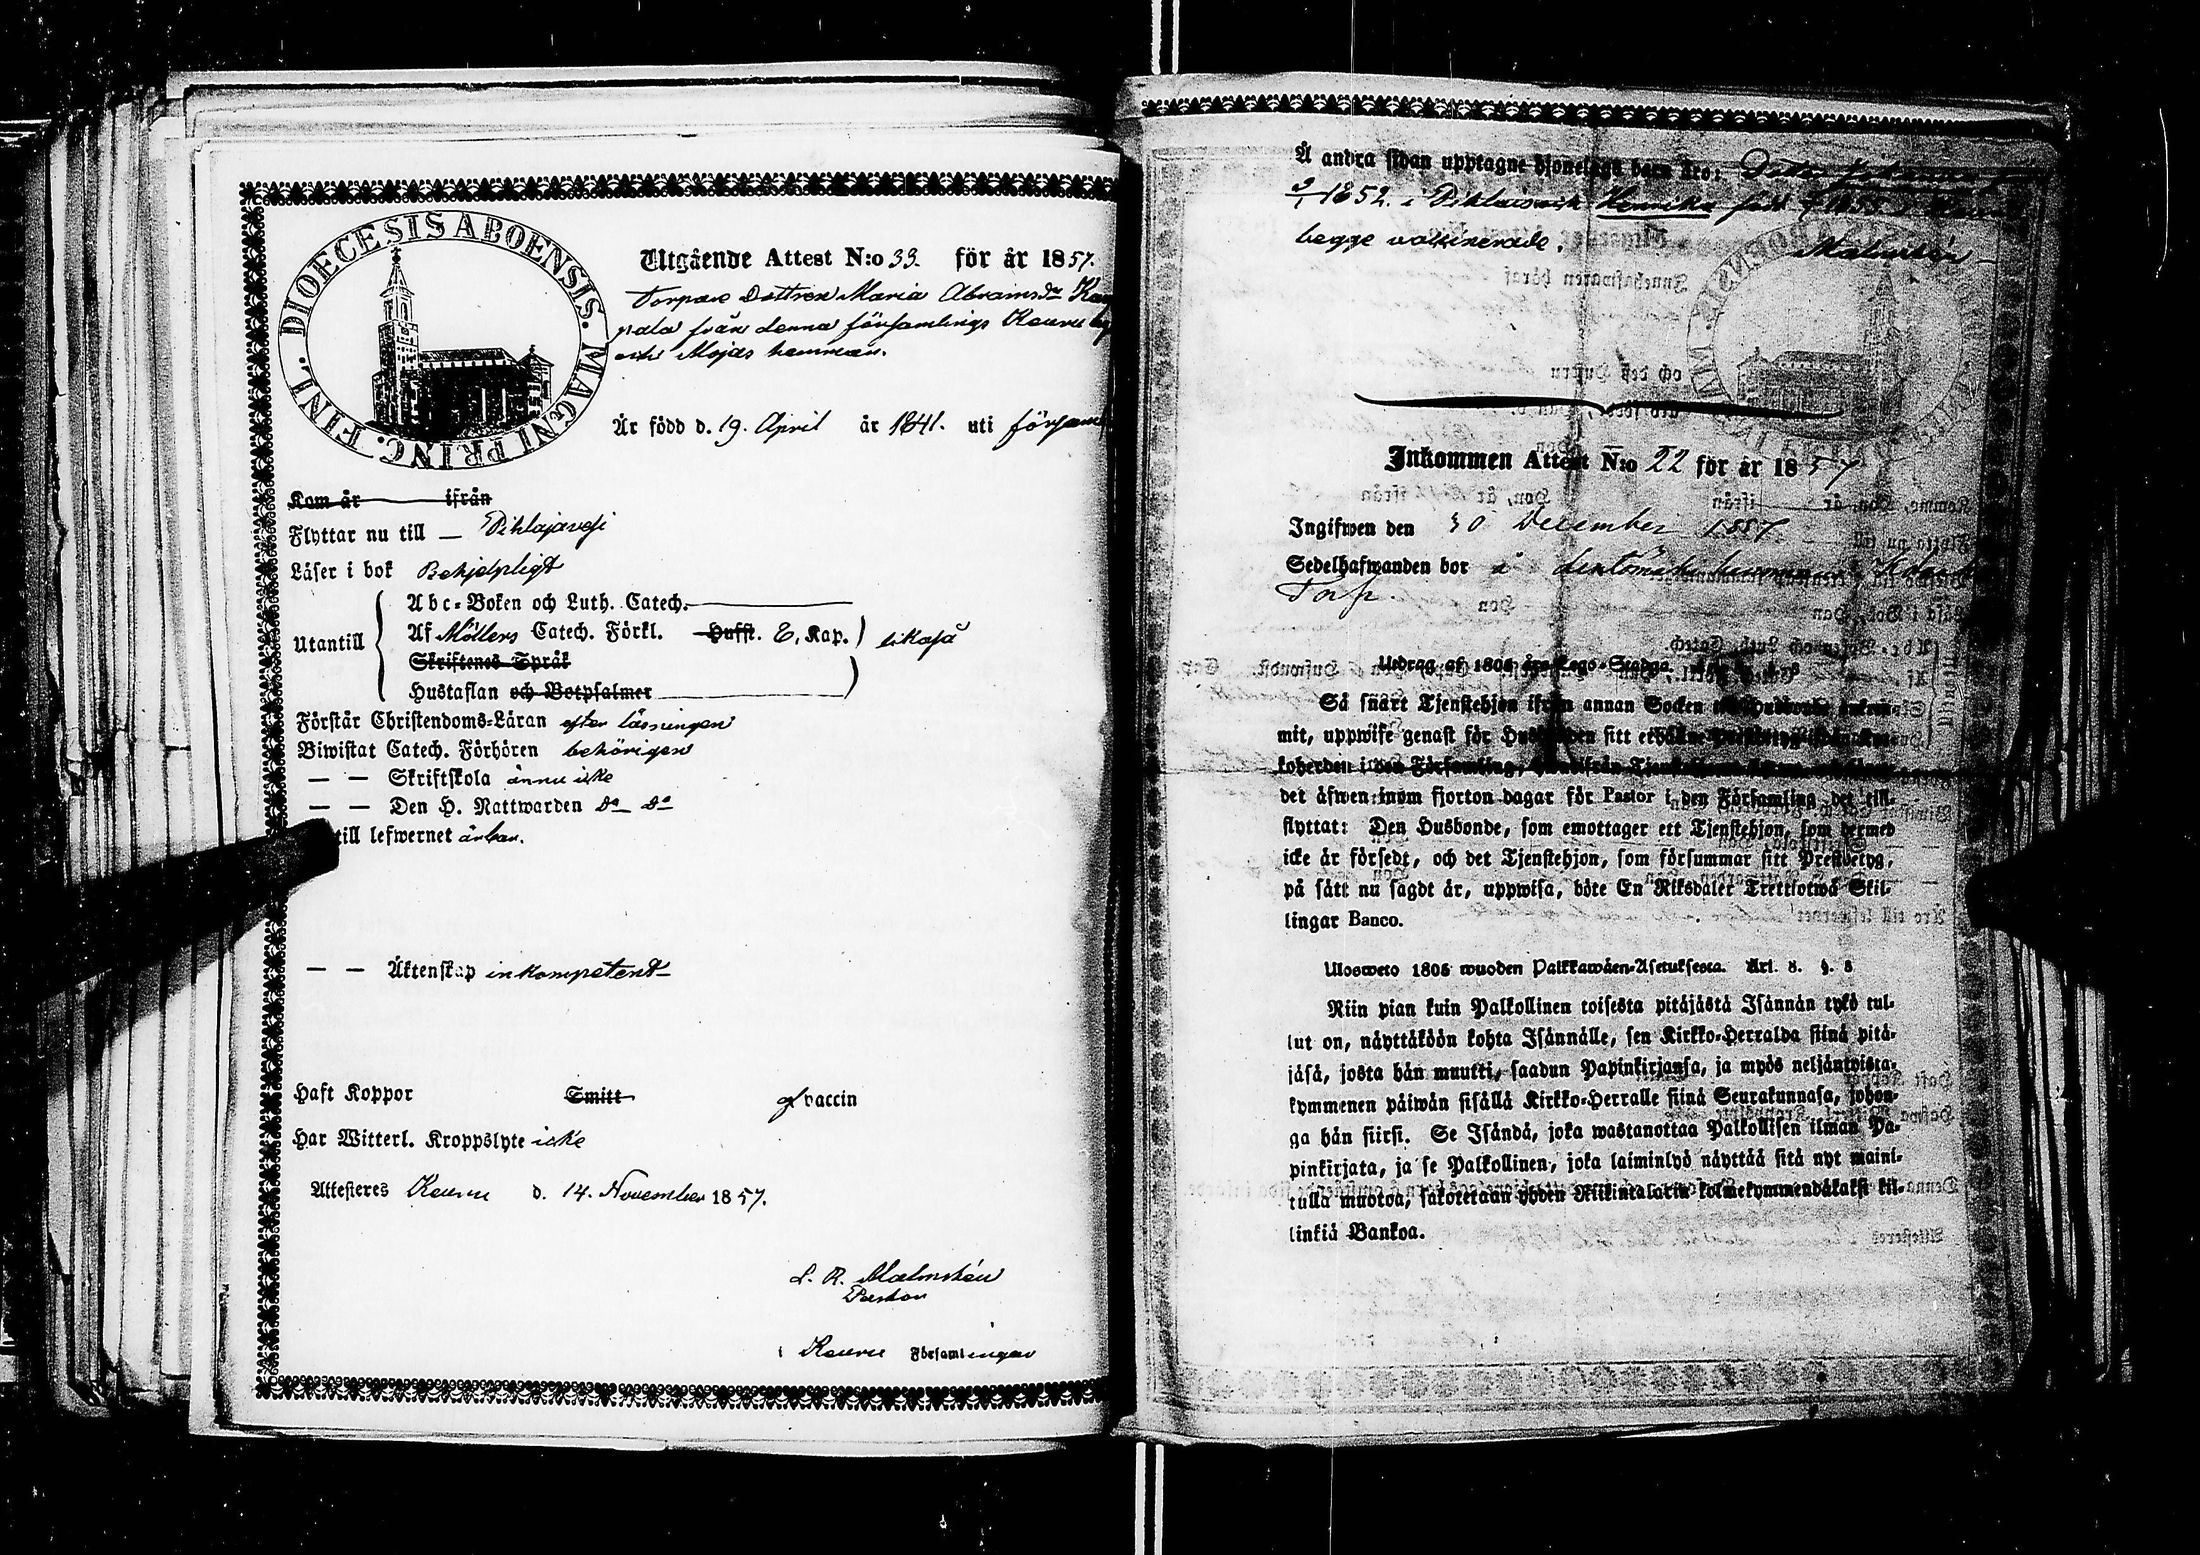 DIOECESIS ABOENSIS. MAGNI PRINC. FINL.
Utgående Attest N:o 33. för år 1857.
Torpare Dottren Maria Abramsdr
pala från denna församlings Keuru
och Mojas hemman.
Är född d. 19. April år 1841. uti församl
Kom år ifrån
Flyttar nu till — Pihlajavesi
Läser i bok Behjelpligt
Utantill
Abc-Boken och Luth. Catech.
Af Möllers Catech. Förkl. Husst. E, Kap. likaså
Skriftenes Språk
Hustaflan och Botpsalmer
Förstår Christendoms-Läran efter läsningen
Biwistat Catech. Förhören behörigen
— — Skriftskola ännu icke
— — Den H. Nattwarden do do
till lefwernet ärbar.
— — Äktenskap inkompetent
Haft Koppor Smitt vaccin
Har Witterl. Kroppslyte icke
Attesteres Keuru d. 14. November 1857.
L. R. Malmstén
Pastor
i Keuru Församlingen
Å andra sidan upptagne hjonelags barn äro:
1852. i Henrika född 1855
begge vaccinerade.
Malmstén
Inkommen Attest N:o 22 för år 1857
Ingifwen den 30 December 1857
Sedelhafwanden bor å
Torp.
Utdrag af 1805 års Lego-Stadga
Så snart Tjenstehjon ifrån annan Socken
mit, uppwise genast för Husbonden sitt
koherden i den Församling,
det äfwen inom fjorton dagar för Pastor i den Församling det till-
flyttat: Den Husbonde, som emottager ett Tjenstehjon, som dermed
icke är försedt, och det Tjenstehjon, som försummar sitt Prestbetyg,
på sätt nu sagdt är, uppwisa, böte En Riksdaler Trettiotwå Skil-
lingar Banco.
Ulosweto 1805 wuoden Palkkawäen-Asetuksesta. Art. 8. §. 8
Niin pian kuin Palkollinen toisesta pitäjästä Isännän tykö tul-
lut on, näyttäköön kohta Isännälle, sen Kirkko-Herralda siinä pitä-
jäsä, josta hän muutti, saadun Papinkirjansa, ja myös neljäntoista-
kymmenen päiwän sisällä Kirkko-Herralle siinä Seurakunnasa, johon-
ga hän siirsi. Se Isändä, joka wastanottaa Palkollisen ilman Pa-
pinkirjata, ja se Palkollinen, joka laiminlyö näyttää sitä nyt maini-
tulla muotoa, sakotetaan yhden Riikintalarin kolmekymmendäkaksi kil-
linkiä Bankoa.